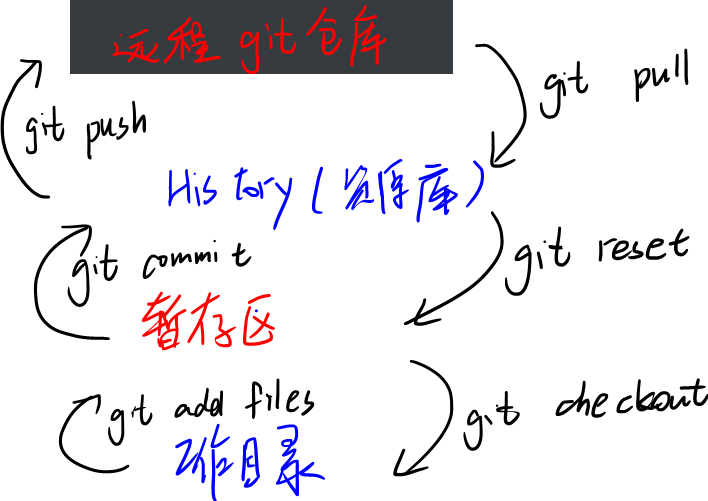 远程git仓库
git push
git pull
History(资源库)
git commit
git reset
暂存区
git add files
git checkout
工作目录